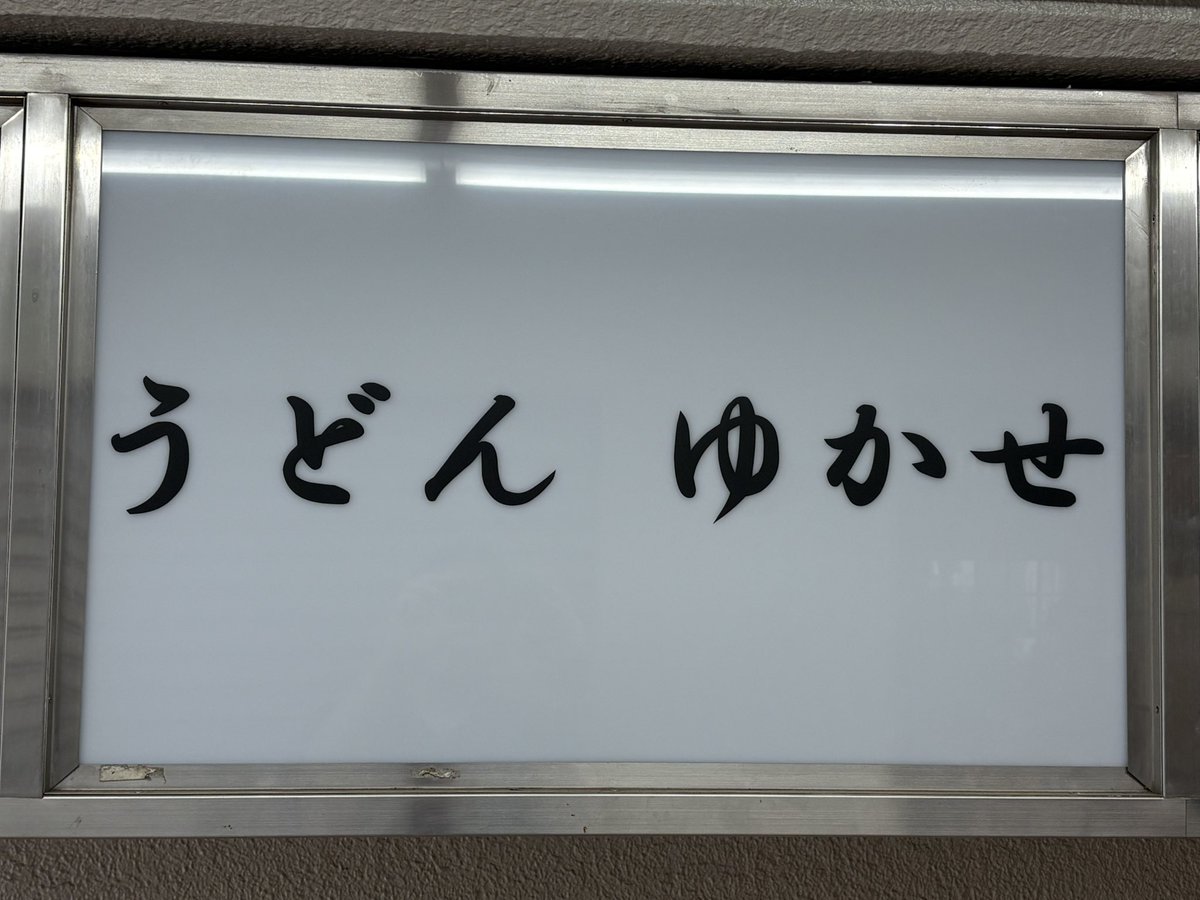 うどん ゆかせ